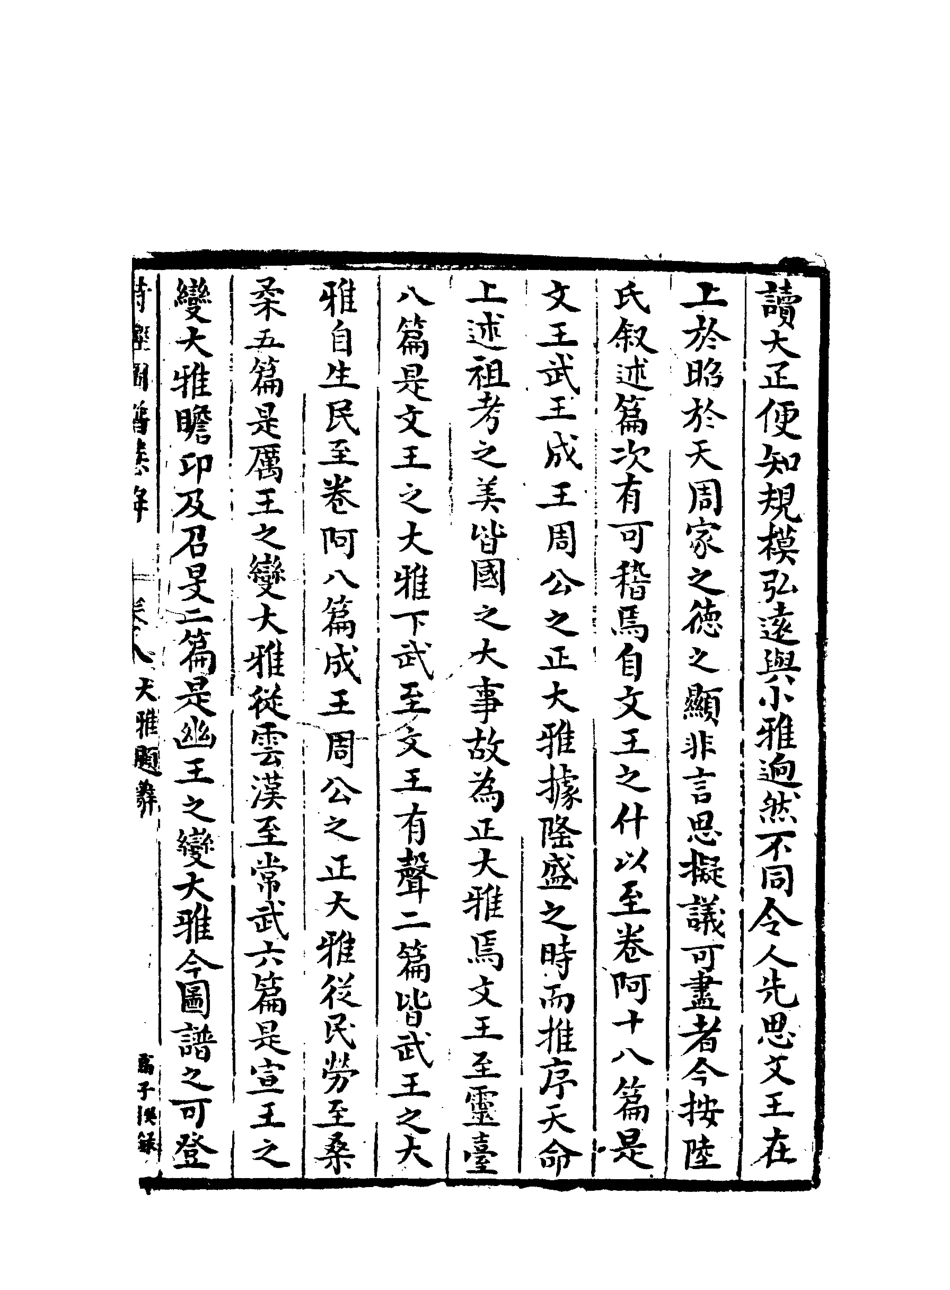 讀大正便知規模弘遠與小雅迥然不同令人先思文王在
上於昭於天周家之德之顯非言思擬議可盡者今按陸
氏叙述篇次有可稽焉自文王之什以至卷阿十八篇是
文王武王成王周公之正大雅據隆盛之時而推序天命
上述祖考之美皆國之大事故為正大雅焉文王至靈臺
八篇是文王之大雅下武至文王有聲二篇皆武王之大
雅自生民至卷阿八篇成王周公之正大雅從民勞至桑
柔五篇是厲王之變大雅從雲漢至常武六篇是宣王之
變大雅瞻卬及召旻二篇是幽王之變大雅今圖譜之可登
卷八 大雅題辭